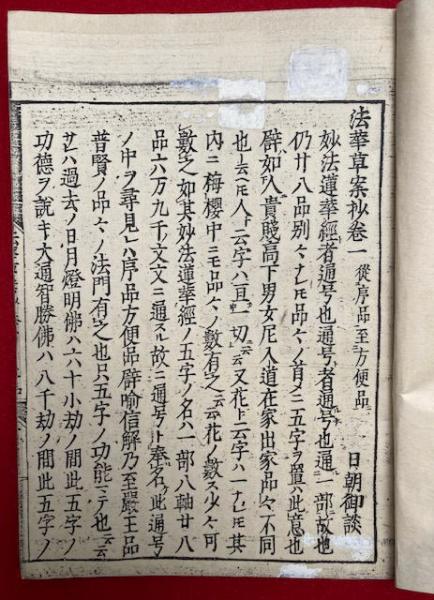 法華草案抄卷一 從序品至方便品 日朝御談
妙法蓮華經者通号也通号者通号也通一部故也
仍廿八品別々ナレ𪜈品々ノ首メニ五字ヲ置ハ此意也
辟如人貴賤高下男女尼入道在家出家品々不同
也云ヘ𪜈人ト云字ハ亘一切云云又花ト云字ハ一ナレ𪜈其
内ニ梅櫻中ニモ品々ノ數有之云云花ノ數スルハ少々可
數之如其妙法蓮華經ノ五字ノ名ハ一部八軸廿八
品六万九千文文ニ通スル故ニ通号ト奉名此通号
ノ中ヲ尋見レハ序品方便品辟喻信解乃至嚴王品
普賢ノ品々ノ法門有之也只五字ノ功能ニテ也云云
サレハ過去ノ日月燈明佛ハ六十小劫ノ間此五字ノ
功德ヲ說キ大通智勝佛ハ八千劫ノ間此五字ノ